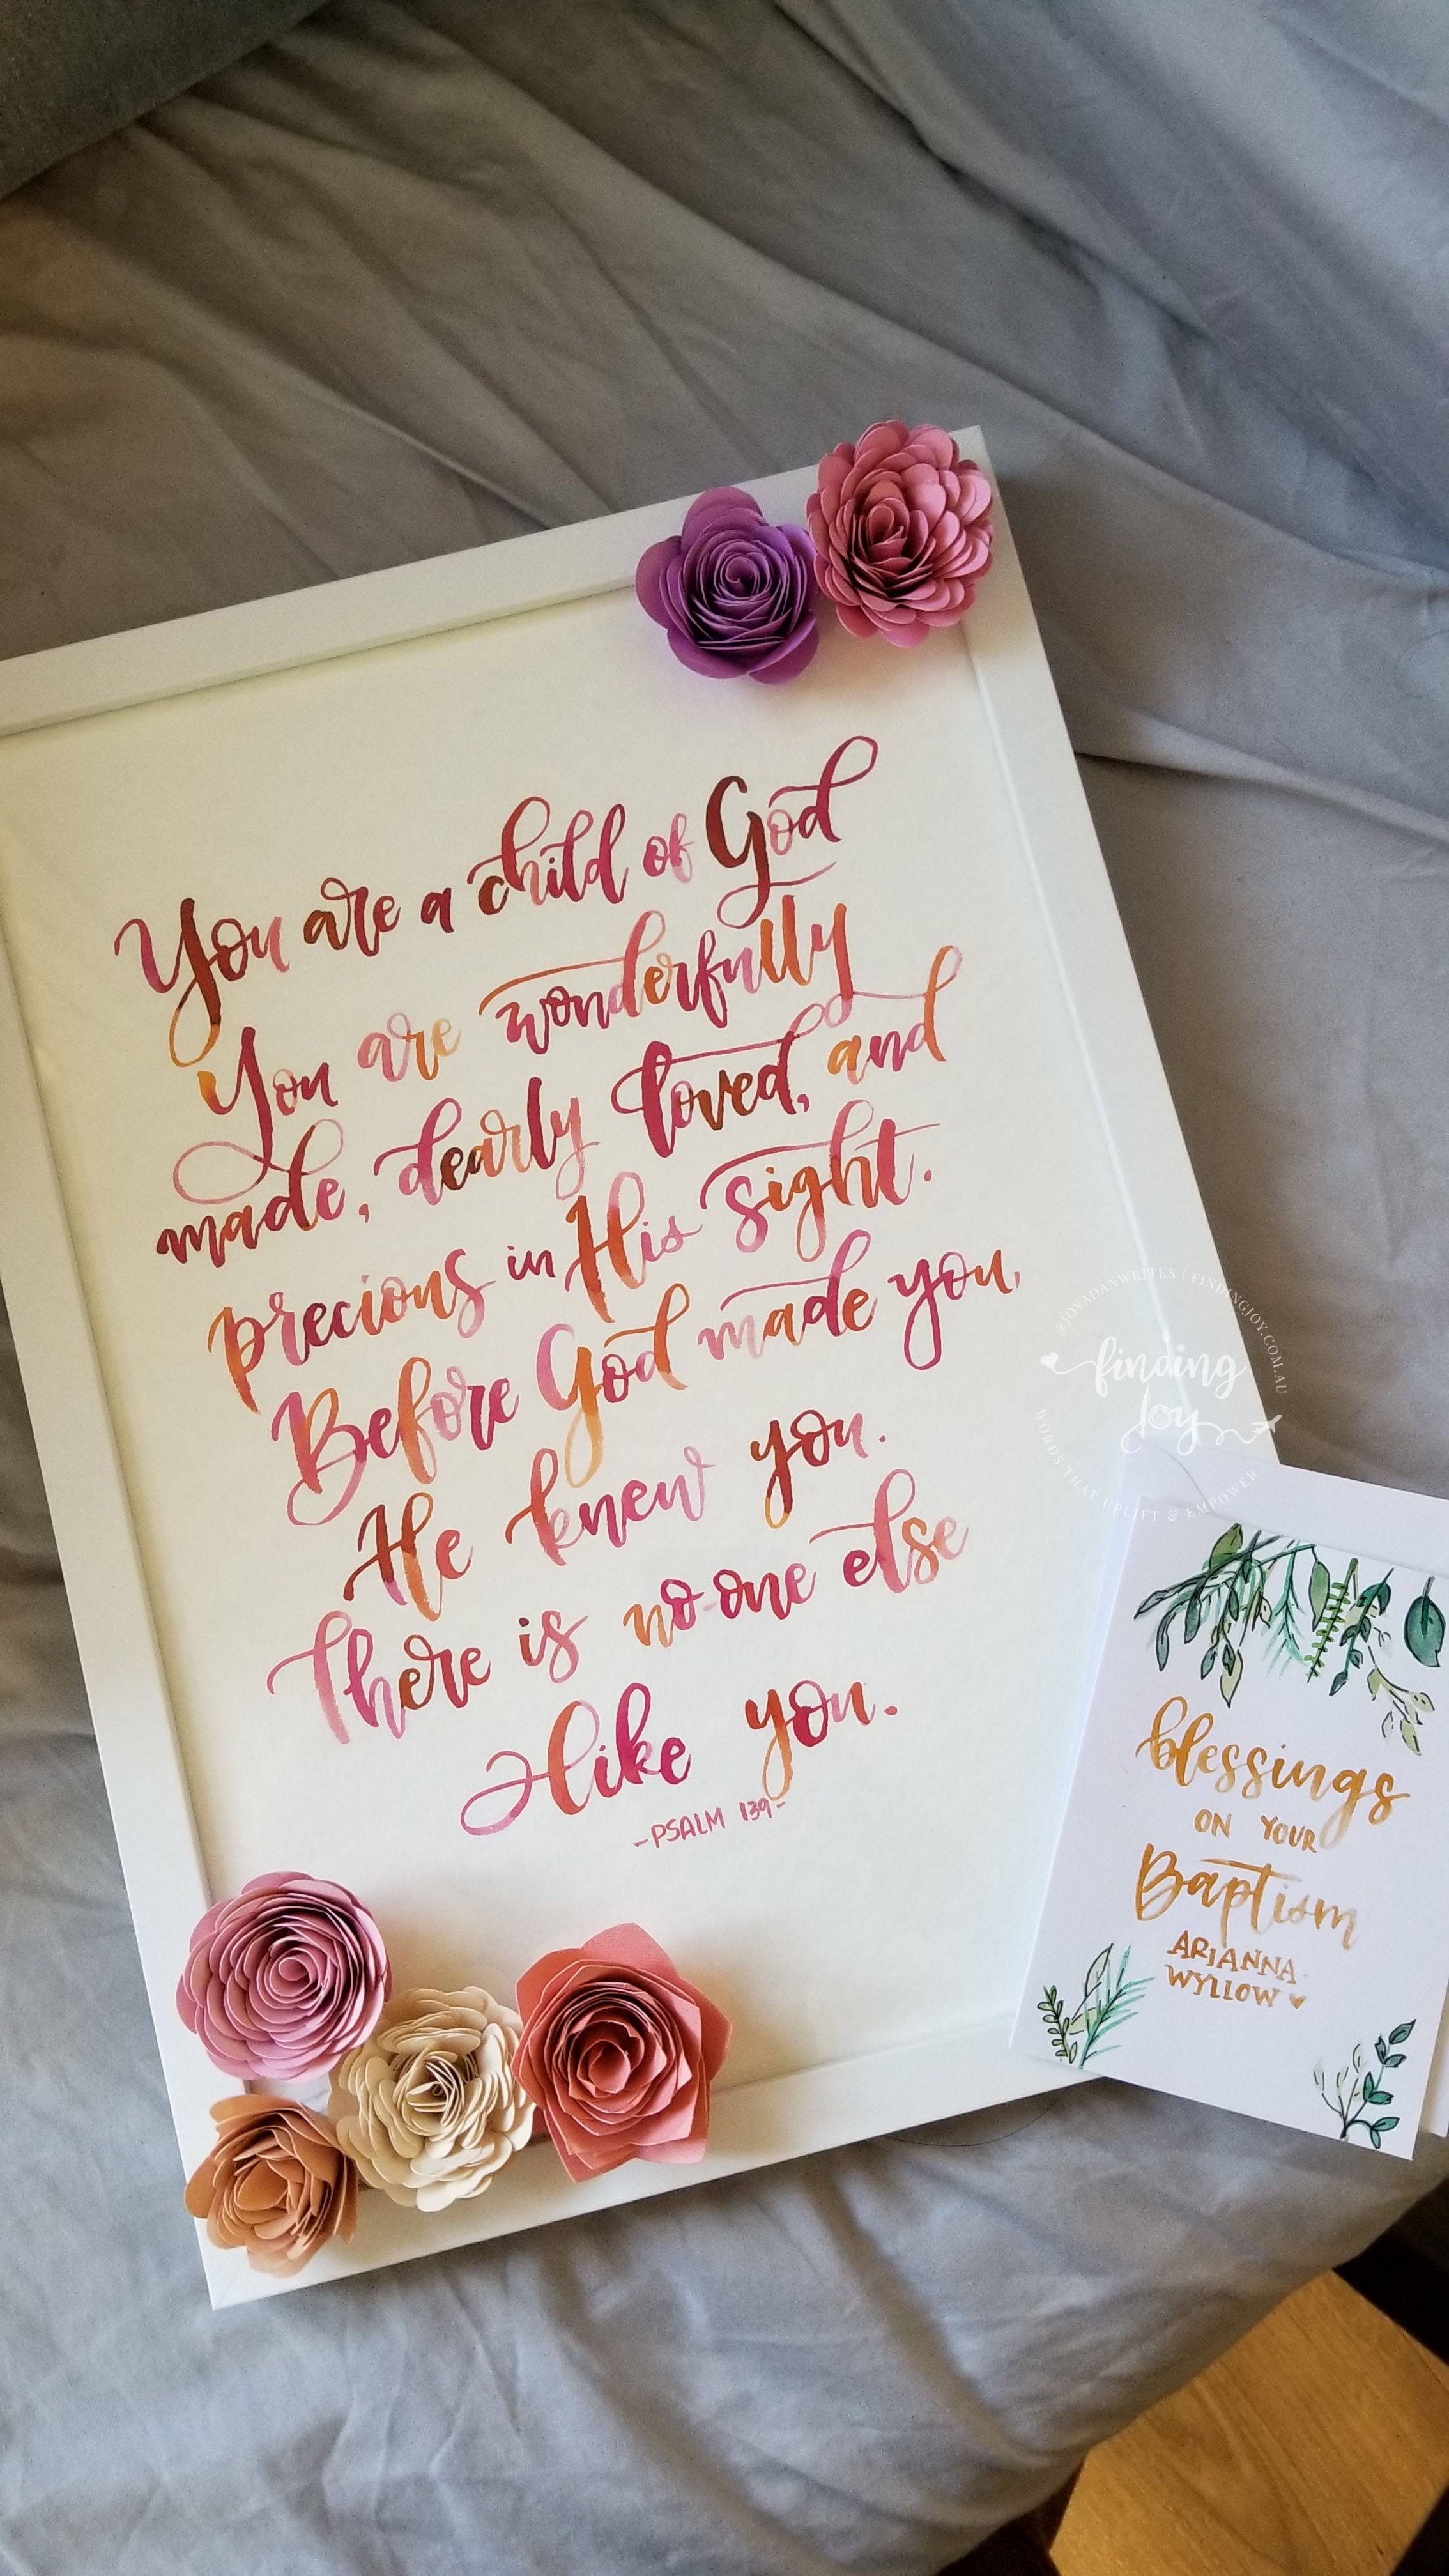 You are a child of God
You are wonderfully
made, dearly loved, and
precious in His sight.
Before God made you,
He knew you.
There is no-one else
like you.
-PSALM 139-
@JOYADANWRITES | FINDINGJOY.COM.AU
finding
Joy
WORDS THAT UPLIFT & EMPOWER
blessings
ON YOUR
Baptism
ARIANNA
WYLLOW